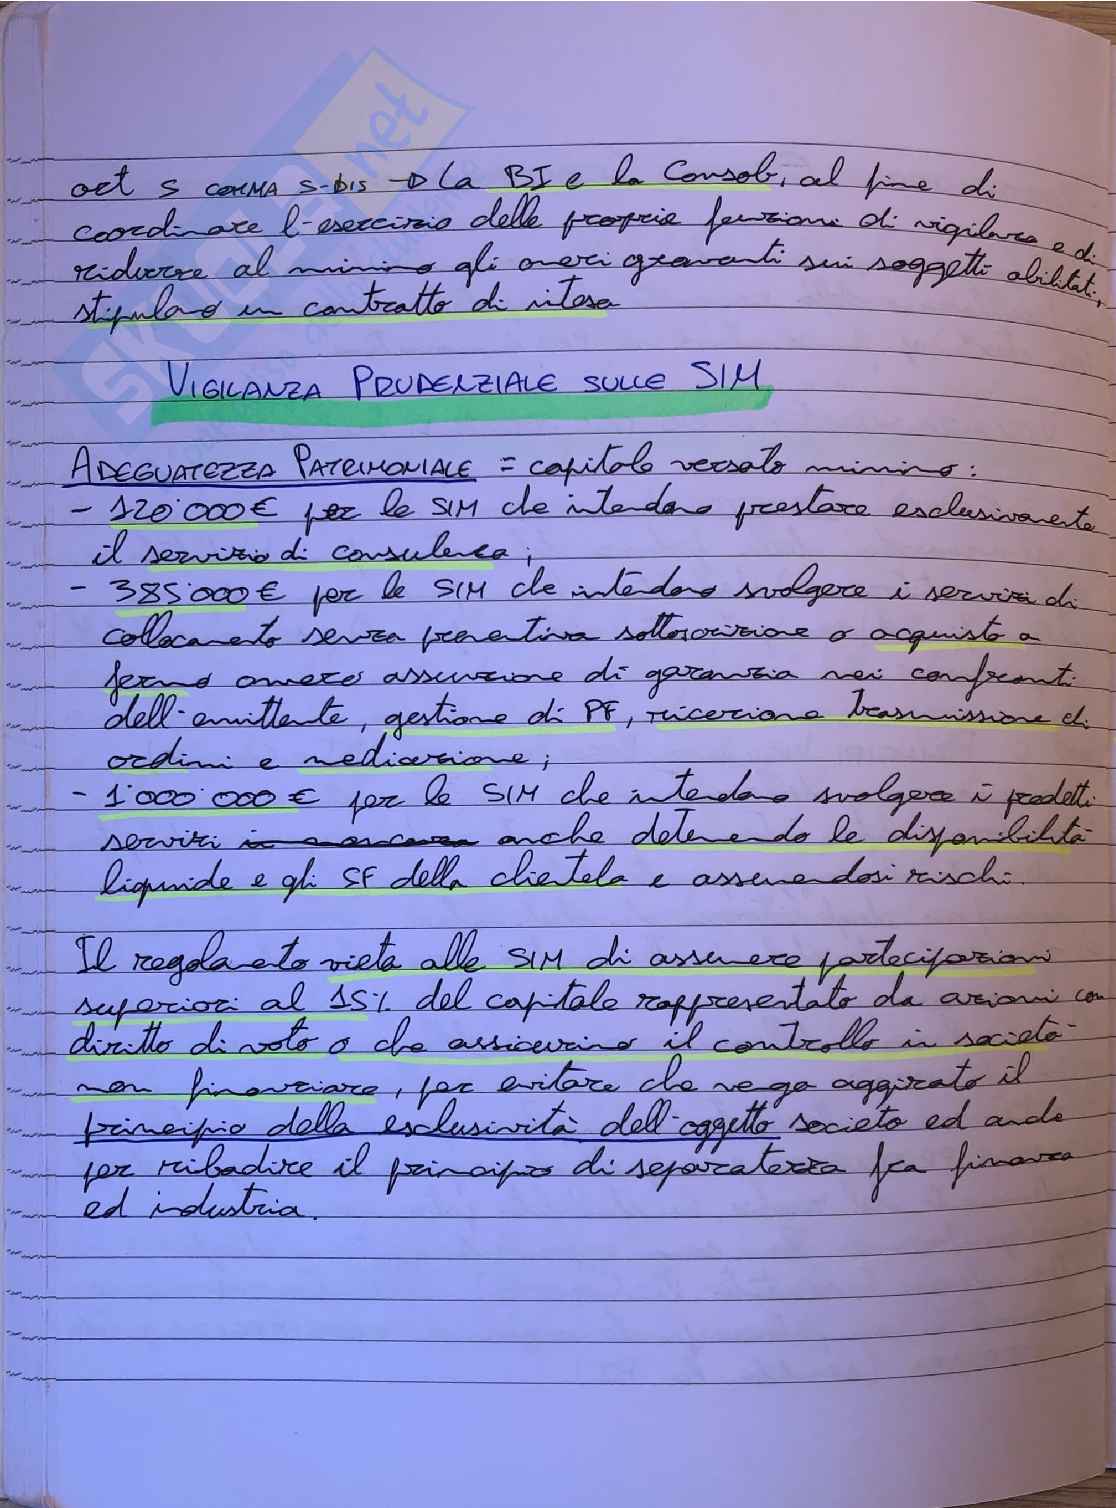 SKUOLA.net
art 5 COMMA 5-bis → La BI e la Consob, al fine di
coordinare l'esercizio delle proprie funzioni di vigilanza e di
ridurre al minimo gli oneri gravanti sui soggetti abilitati,
stipulano un contratto di intesa
VIGILANZA PRUDENZIALE SULLE SIM
ADEGUATEZZA PATRIMONIALE = capitale versato minimo:
- 120'000€ per le SIM che intendono prestare esclusivamente
il servizio di consulenza;
- 385'000€ per le SIM che intendono svolgere i servizi di
collocamento senza preventiva sottoscrizione o acquisto a
fermo ovvero assunzione di garanzia nei confronti
dell'emittente, gestione di PF, ricezione trasmissione di
ordini e mediazione;
- 1'000'000€ per le SIM che intendono svolgere i predetti
servizi anche detenendo le disponibilità
liquide e gli SF della clientela e assumendosi rischi.
Il regolamento vieta alle SIM di assumere partecipazioni
superiori al 15% del capitale rappresentato da azioni con
diritto di voto o che assicurino il controllo in società
non finanziare, per evitare che venga aggirato il
principio della esclusività dell'oggetto società ed anche
per ribadire il principio di separatezza fra finanza
ed industria.